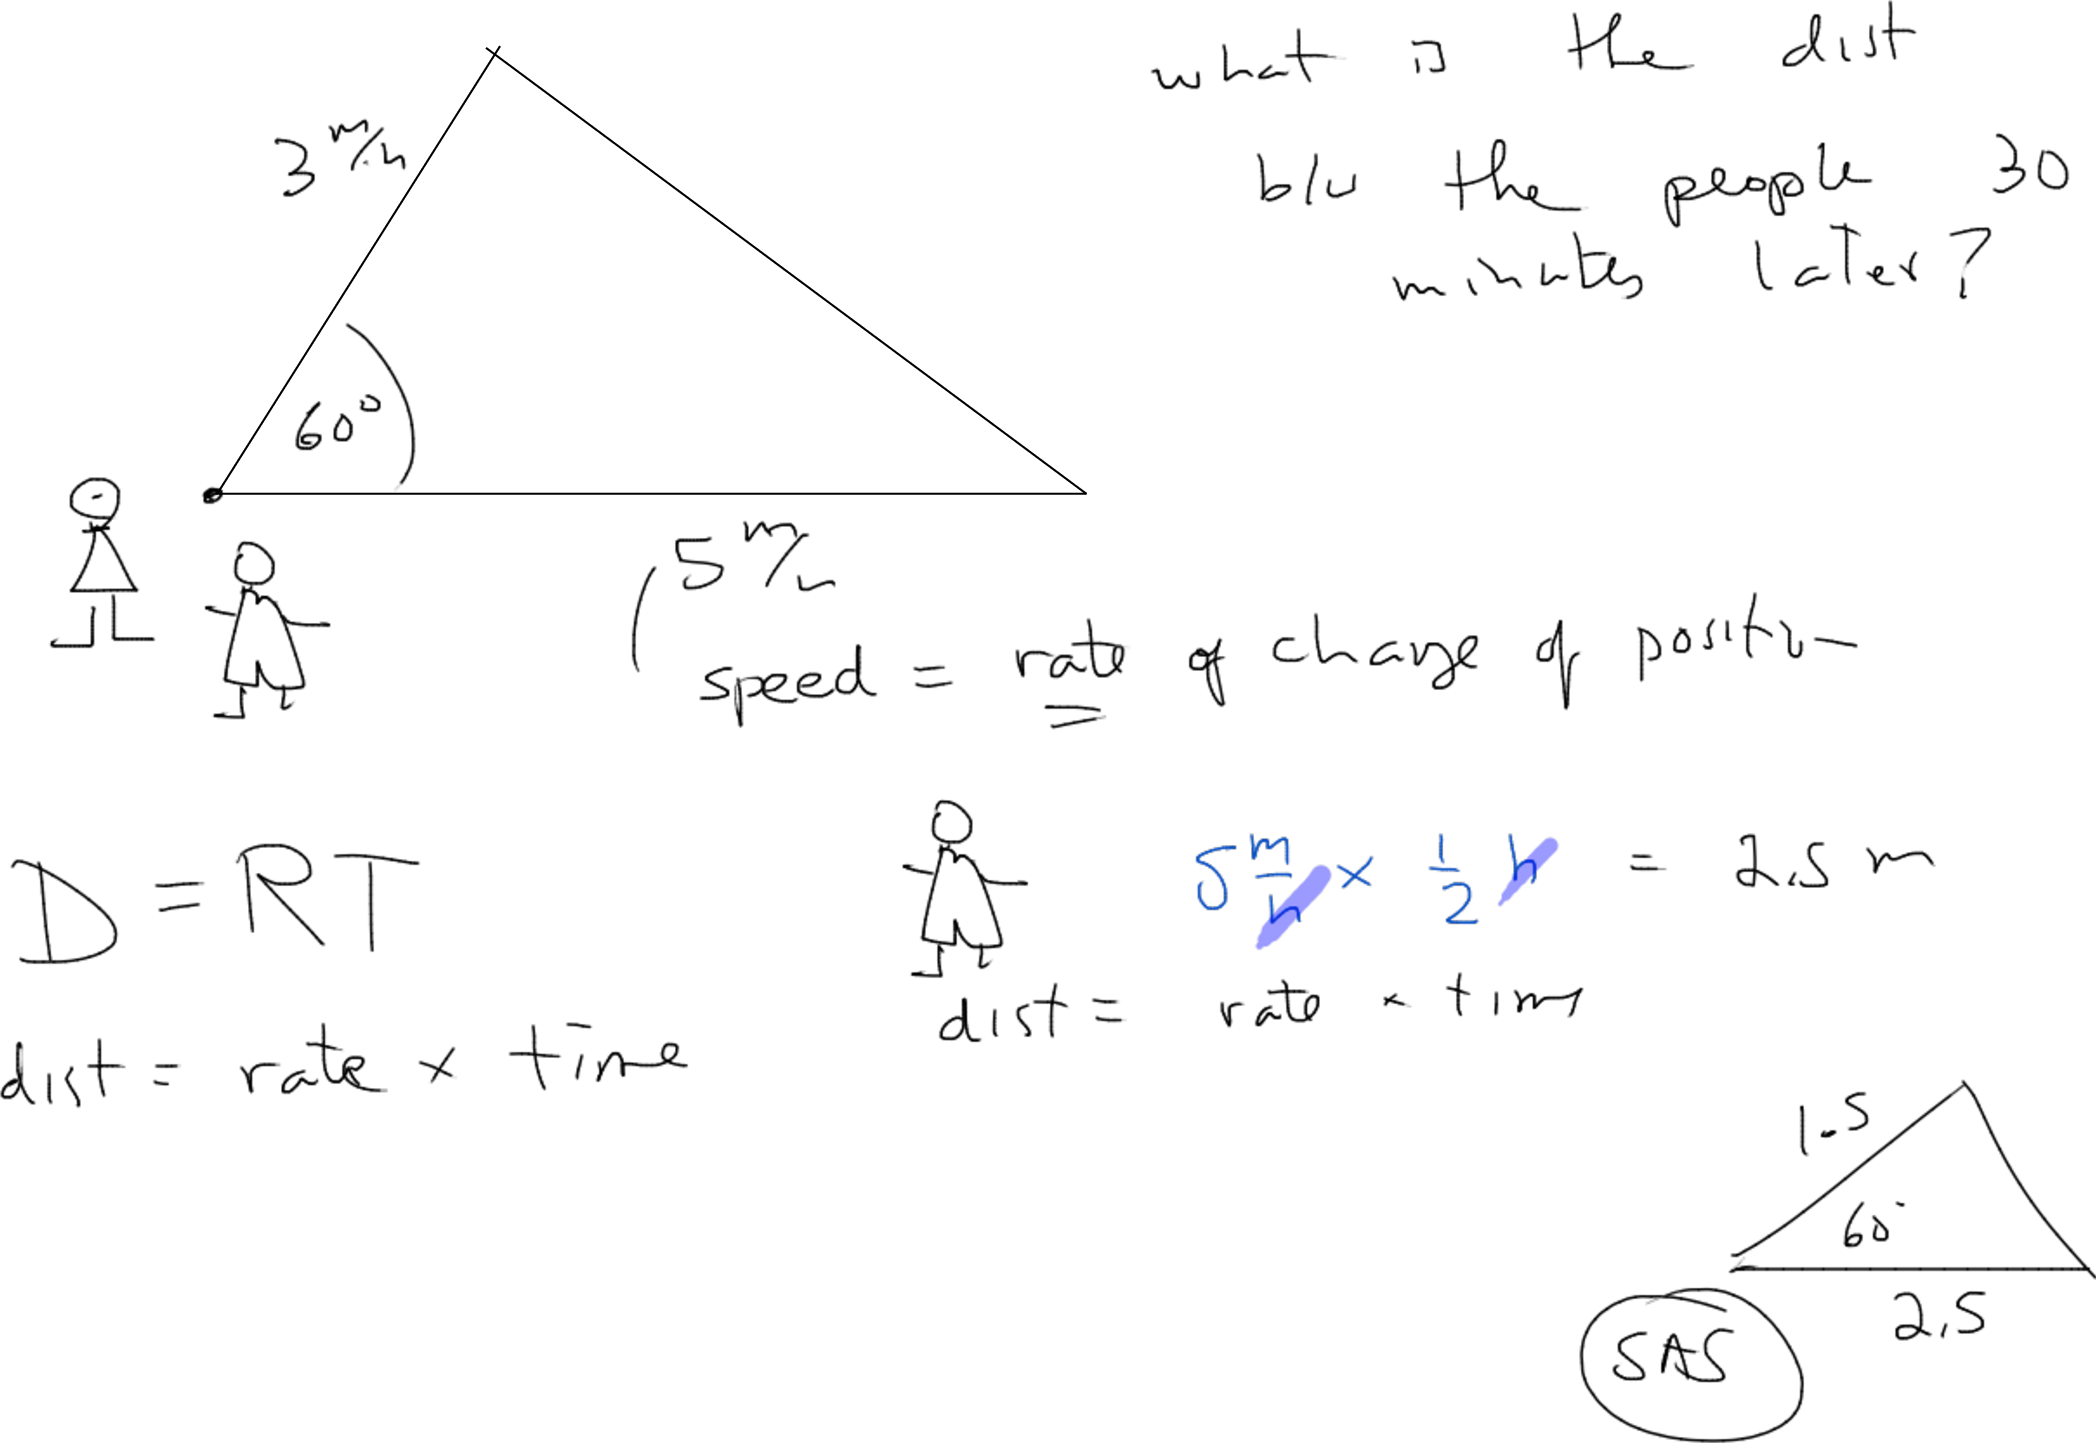 what is the dist
b/w the people 30
minutes later?
3 m/h
60°
5 m/h
speed = rate of change of position
D = RT
5 m/h × 1/2 h = 2.5 m
dist = rate × time
dist = rate × time
1.5
60°
2.5
SAS